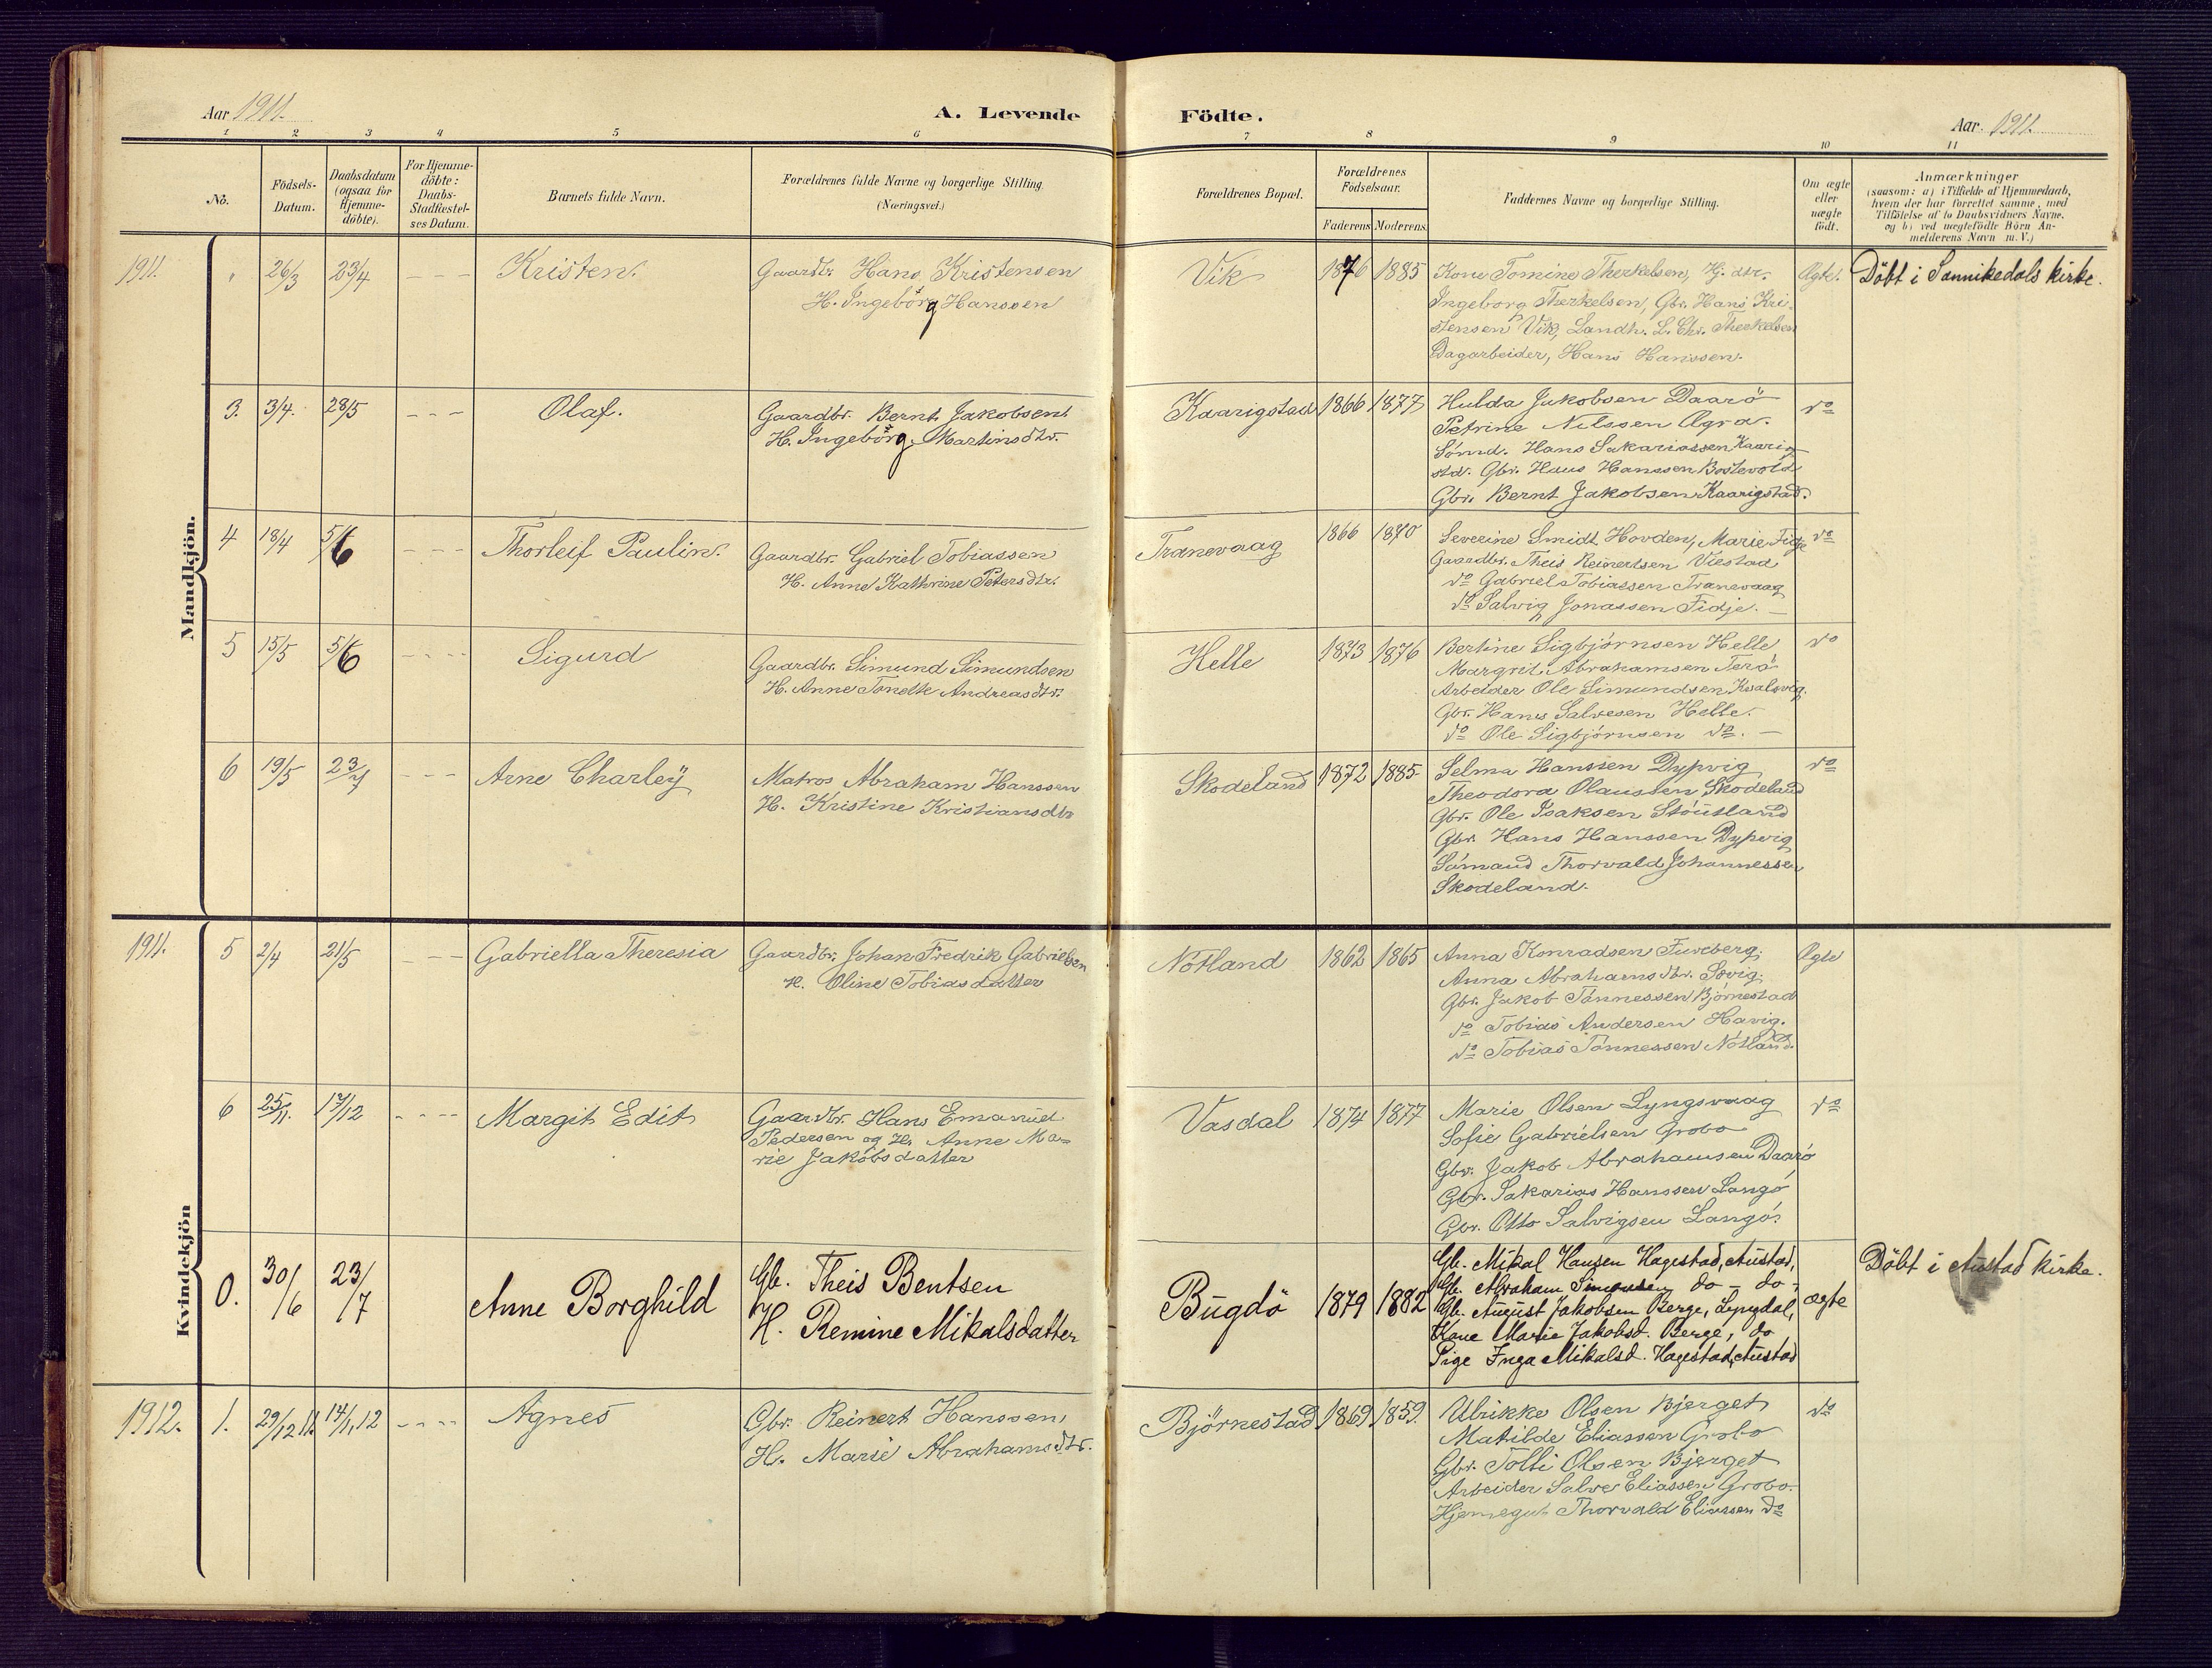 Aar 1911.
A. Levende Födte.
Aar. 1911.
1 2 3 4 5 6 7 8 9 10 11
No.
Födsels-
Datum.
Daabsdatum
(ogsaa for
Hjemme-
döbte).
For Hjemme-
döbte:
Daabs-
Stadfæstel-
ses Datum.
Barnets fulde Navn.
Forældrenes fulde Navne og borgerlige Stilling
(Næringsvei.)
Forældrenes Bopæl.
Forældrenes
Födselsaar.
Faderens Moderens
Faddernes Navne og borgerlige Stilling.
Om ægte
eller
uægte
födt.
Anmærkninger
(saasom: a) i Tilfælde af Hjemmedaab,
hvem der har forrettet samme, med
Tilföielse af to Daabsvidners Navne.
og b) ved uægtefödte Börn An-
melderens Navn m.V.)
Mandkjön.
1911. " 26/3 23/4 - - - Kristen.
Gaardbr. Hans Kristensen
H. Ingebörg Hanssen
Vik 1876 1885
Kone Tomine Therkelsen, Hj. dtr.
Ingeborg Therkelsen, Gbr. Hans Kri-
stensen Vik, Landh. L. Chr. Therkelsen
Dagarbeider, Hans Hanssen.
Ægte.
Döbt i Sannikedals kirke.
3. 3/4. 28/5 - - - Olaf.
Gaardbr. Bernt Jakobsen
H. Ingebörg Martinsdtr.
Kaarigstad 1866 1877
Hulda Jakobsen Daarö
Petrine Nilssen Agra.
Sömd. Hans Sakariassen Kaarig-
std. Gbr. Hans Hanssen Bostevold
Gbr. Bernt Jakobsen Kaarigstad.
do
4 18/4 5/6 - - - Thorleif Paulin.
Gaardbr. Gabriel Tobiassen
H. Anne Kathrine Petersdtr.
Tranevaag 1866 1870
Severine Smidt Hovden, Marie Fidje
Gaardbr. Theis Reinertsen Viestad
do Gabriel Tobiassen Tranevaag
do Salvig Jonassen Fidje.
do
5 15/5 5/6 - - - - Sigurd
Gaardbr. Simund Simundsen
H. Anne Tondte Andreasdtr.
Helle 1873 1876
Bertine Sigbjörnsen Helle
Margrit Abrahamsen Terö
Arbeider Ole Simundsen Kvalsvig.
Gbr. Hans Salvesen Helle.
do Ole Sigbjörnsen do. —
do
6 19/5 23/7 - - - Arne Charley
Matros Abraham Hanssen
H. Kristine Kristiansdtr
Skodeland 1872 1885
Selma Hanssen Dypvig
Theodora Olaussen Skodeland
Gbr. Ole Isaksen Stöutland
Gbr. Hans Hanssen Dypvig
Sömand Thorvald Johannessen
Skodeland.
do
Kvindekjön
1911. 5 2/4 21/5 - - - Gabriella Theresia
Gaardbr. Johan Fredrik Gabrielsen
H. Oline Tobiasdatter
Nötland 1862 1865
Anna Konradsen Fureberg.
Anna Abrahamsdtr. Sövig.
Gbr. Jakob Tönnessen Björnestad
do Tobias Andersen Havig.
do Tobias Tönnessen Nötland.
Ægte
6 25/11. 17/12 - - - - Margit Edit
Gaardbr. Hans Emanuel
Pedersen og H. Anne Ma-
rie Jakobsdatter
Vasdal 1874 1877
Marie Olsen Lyngsvaag
Sofie Gabrielsen Grobo
Gbr. Jakob Abrahamsen Daarö
Gbr. Sakarias Hanssen Langö
Gbr. Otto Salvigsen Langö.
do
0. 30/6 23/7 Anne Borghild
Gb. Theis Bentsen
H. Remine Mikalsdatter
Bugdö 1879 1882
Gb. Mikal Hansen Hagestad, Austad,
Gb. Abraham Simonsen do - do -
Gb. August Jakobsen Berge, Lyngdal,
Kone Marie Jakobsd. Berge, do
Pige Inga Mikalsd. Hagestad, Austad
ægte
Döbt i Austad kirke.
1912. 1. 29/12 11. 14/1, 12 - - - - Agnes
Gbr. Reinert Hanssen,
H. Marie Abrahamsdtr.
Björnestad 1869 1859.
Ulrikke Olsen Bjerget
Matilde Eliassen Grobo
Gbr. Tolli Olsen Bjerget
Arbeider Salve Eliassen Grobo.
Hjemegut Thorvald Eliassen do
do